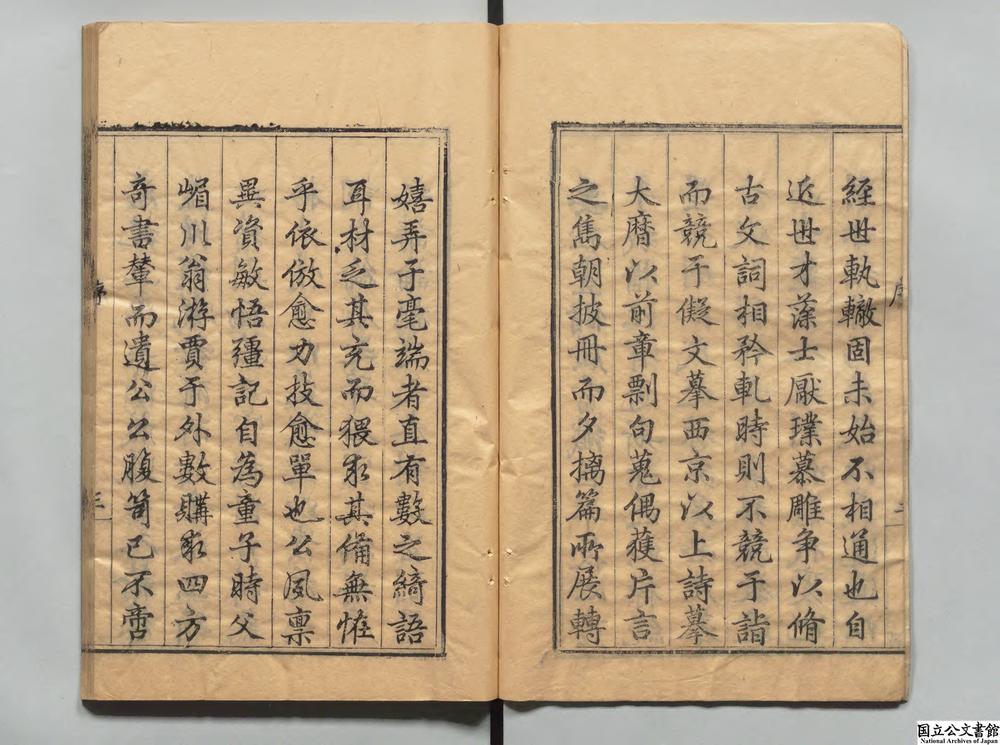 序
二
經世軌轍固未始不相通也自
近世才藻士厭璞慕雕爭以脩
古文詞相矜軋時則不競于詣
而競于儗文摹西京以上詩摹
大曆以前章剽句蒐偶獲片言
之雋朝披冊而夕摛篇所展轉
嬉弄于毫端者直有數之綺語
耳材乏其充而猥求其備無恠
乎依倣愈力技愈單也公夙禀
異資敏悟彊記自為童子時父
嵋川翁游賈于外數購求四方
奇書輦而遺公公腹笥已不啻
序
三
国立公文書館
National Archives of Japan